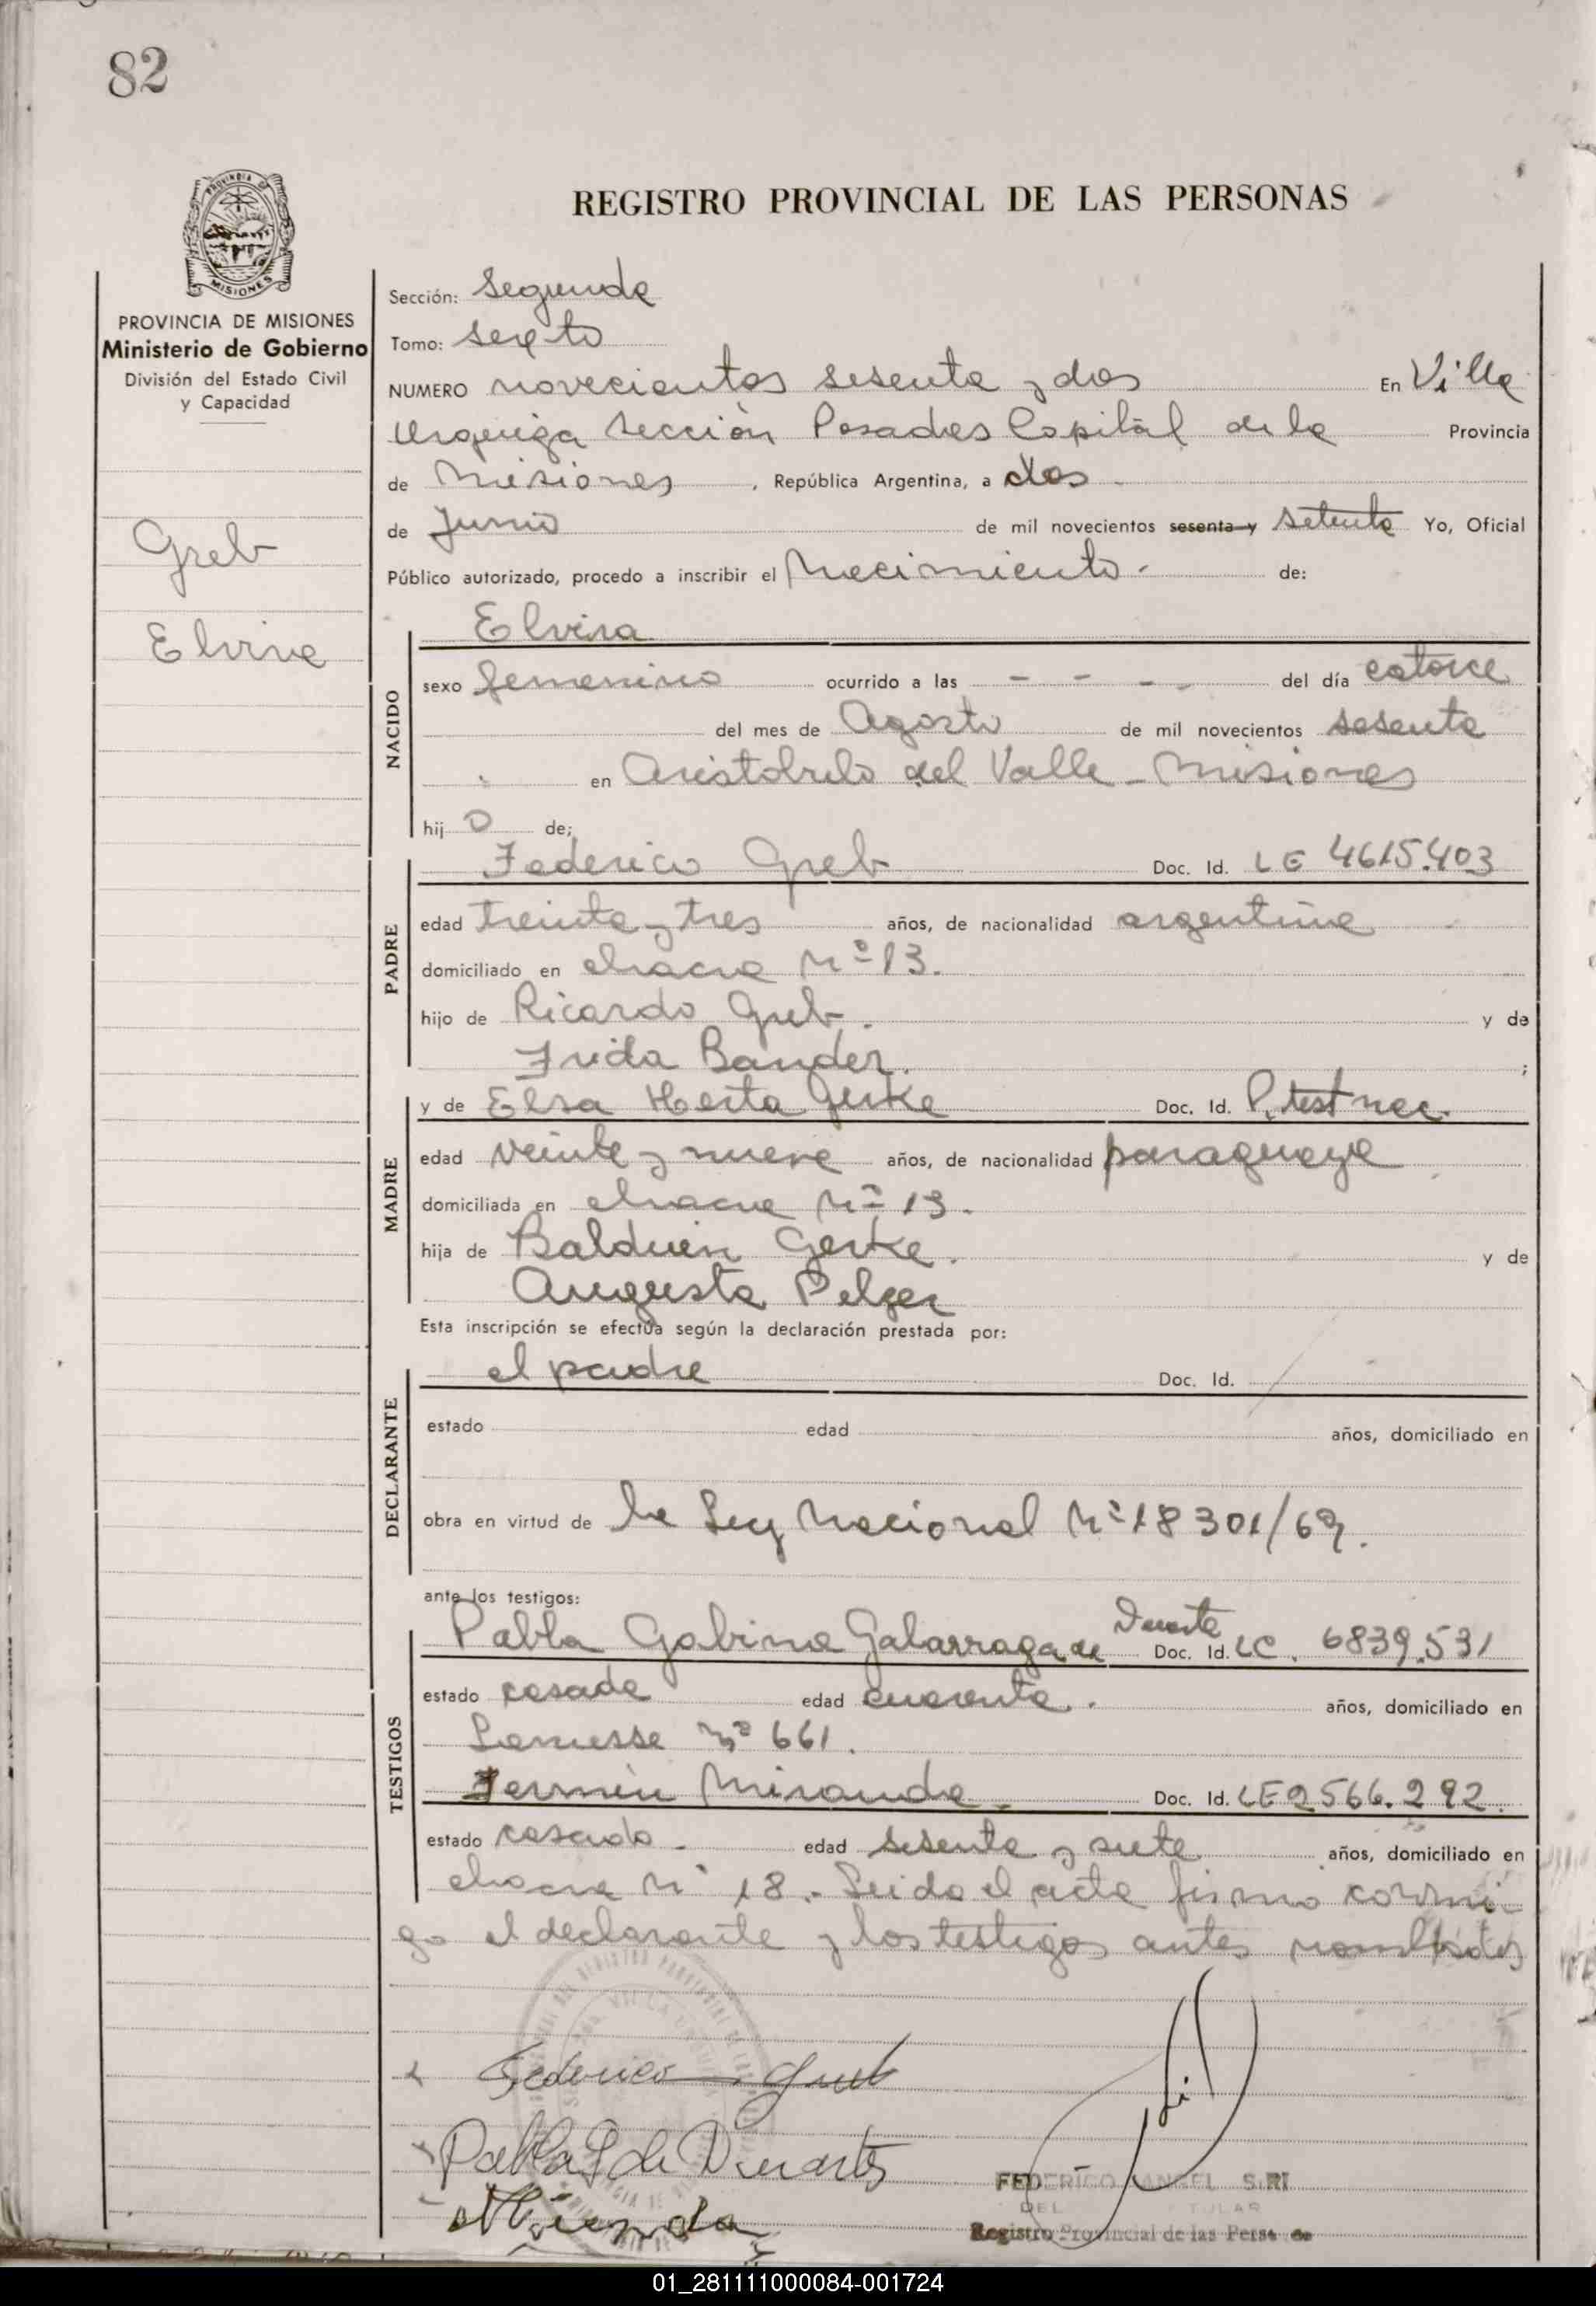 82
REGISTRO PROVINCIAL DE LAS PERSONAS
PROVINCIA DE
MISIONES
PROVINCIA DE MISIONES
Ministerio de Gobierno
División del Estado Civil
y Capacidad
Greb
Elvira
Sección: Segunda
Tomo: sexto
NUMERO novecientos sesenta y dos En Villa
Urquiza Sección Posadas Capital de la Provincia
de Misiones, República Argentina, a dos
de Junio de mil novecientos sesenta y setenta Yo, Oficial
Público autorizado, procedo a inscribir el Nacimiento.- de:
NACIDO
Elvira
sexo femenino ocurrido a las - - - - del día catorce
del mes de Agosto de mil novecientos sesenta
en Aristobulo del Valle - Misiones
hij O de;
PADRE
Federico Greb Doc. Id. LE 4615.403
edad treinta y tres años, de nacionalidad argentina
domiciliado en chacra Nº 13.
hijo de Ricardo Greb. y de
Frida Bander. ;
MADRE
y de Elsa Herta Gerke Doc. Id. P. test nac.
edad veinte y nueve años, de nacionalidad paraguaya
domiciliada en chacra Nº 13.
hija de Balduin Gerke. y de
Augusta Pelzer
Esta inscripción se efectúa según la declaración prestada por:
DECLARANTE
el padre Doc. Id.
estado edad años, domiciliado en
obra en virtud de la Ley Nacional Nº 18301/69.
ante los testigos:
TESTIGOS
Pabla Gabina Galarraga de Duarte Doc. Id. LC. 6839.531
estado casada edad cuarenta. años, domiciliado en
Lamusse Nº 661.
Fermín Miranda - Doc. Id. LE 2566.292.
estado casado - edad sesenta y siete años, domiciliado en
chacra Nº 18.- Leido el acta firma conmi-
go el declarante y los testigos antes
Federico Greb
Pabla G de Duarte
Miranda
FEDERICO ANGEL SIRI
Registro Provincial de las Persa
01_281111000084-001724